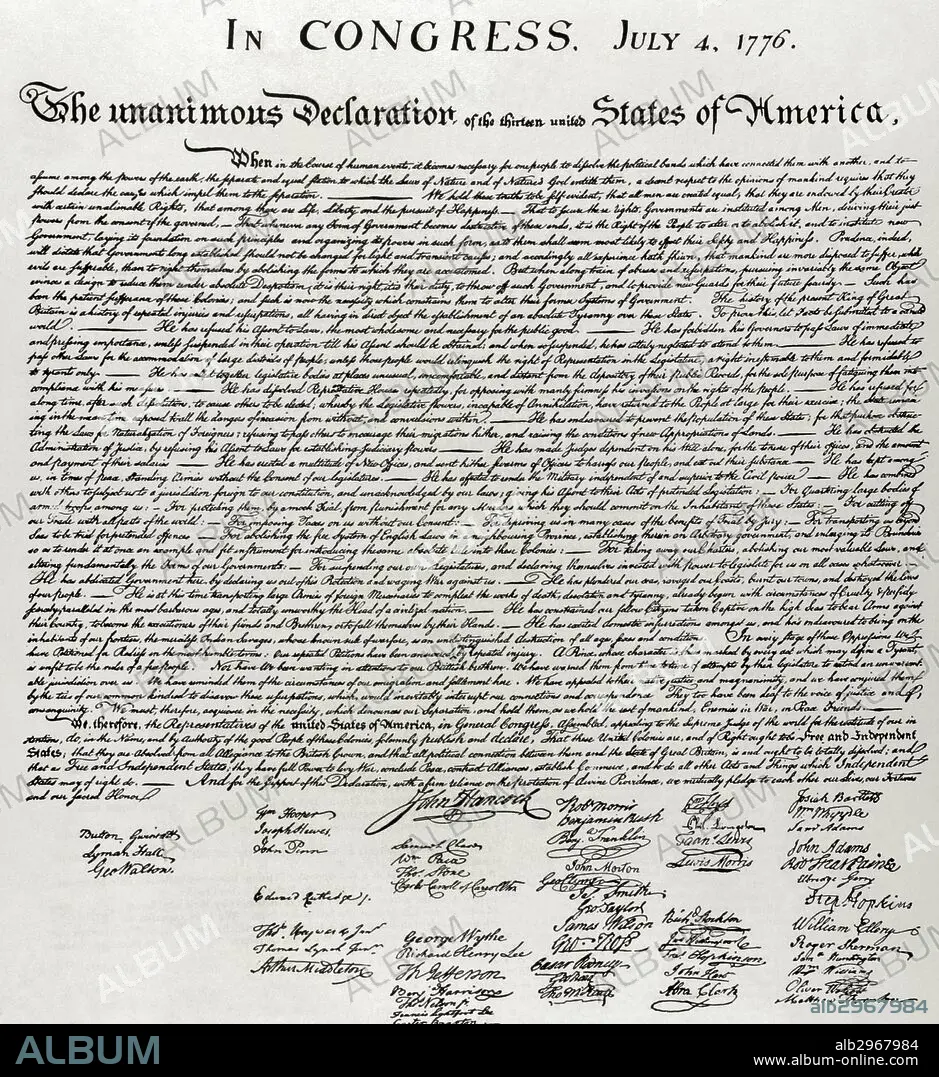 In CONGRESS. July 4, 1776.
The unanimous Declaration of the thirteen united States of America,
When in the Course of human events, it becomes necessary for one people to dissolve the political bands which have connected them with another, and to
assume among the powers of the earth, the separate and equal station to which the Laws of Nature and of Nature's God entitle them, a decent respect to the opinions of mankind requires that they
should declare the causes which impel them to the separation. — We hold these truths to be self-evident, that all men are created equal, that they are endowed by their Creator
with certain unalienable Rights, that among these are Life, Liberty and the pursuit of Happiness. — That to secure these rights, Governments are instituted among Men, deriving their just
powers from the consent of the governed, — That whenever any Form of Government becomes destructive of these ends, it is the Right of the People to alter or to abolish it, and to institute new
Government, laying its foundation on such principles and organizing its powers in such form, as to them shall seem most likely to effect their Safety and Happiness. Prudence, indeed,
will dictate that Governments long established should not be changed for light and transient causes; and accordingly all experience hath shewn, that mankind are more disposed to suffer, while
evils are sufferable, than to right themselves by abolishing the forms to which they are accustomed. But when a long train of abuses and usurpations, pursuing invariably the same Object
evinces a design to reduce them under absolute Despotism, it is their right, it is their duty, to throw off such Government, and to provide new Guards for their future security. — Such has
been the patient sufferance of these Colonies; and such is now the necessity which constrains them to alter their former Systems of Government. The history of the present King of Great
Britain is a history of repeated injuries and usurpations, all having in direct object the establishment of an absolute Tyranny over these States. To prove this, let Facts be submitted to a candid
world. — He has refused his Assent to Laws, the most wholesome and necessary for the public good. — He has forbidden his Governors to pass Laws of immediate
and pressing importance, unless suspended in their operation till his Assent should be obtained; and when so suspended, he has utterly neglected to attend to them. — He has refused to
pass other Laws for the accommodation of large districts of people, unless those people would relinquish the right of Representation in the Legislature, a right inestimable to them and formidable
to tyrants only. — He has called together legislative bodies at places unusual, uncomfortable, and distant from the depository of their public Records, for the sole purpose of fatiguing them into
compliance with his measures. — He has dissolved Representative Houses repeatedly, for opposing with manly firmness his invasions on the rights of the people. — He has refused for
a long time, after such dissolutions, to cause others to be elected; whereby the Legislative powers, incapable of Annihilation, have returned to the People at large for their exercise; the State remain
ing in the mean time exposed to all the dangers of invasion from without, and convulsions within. — He has endeavoured to prevent the population of these States; for that purpose obstruc
ting the Laws for Naturalization of Foreigners; refusing to pass others to encourage their migrations hither, and raising the conditions of new Appropriations of Lands. — He has obstructed the
Administration of Justice, by refusing his Assent to Laws for establishing Judiciary powers. — He has made Judges dependent on his Will alone, for the tenure of their offices, and the amount
and payment of their salaries. — He has erected a multitude of New Offices, and sent hither swarms of Officers to harrass our people, and eat out their substance. — He has kept among
us, in times of peace, Standing Armies without the Consent of our legislatures. — He has affected to render the Military independent of and superior to the Civil power. — He has combined
with others to subject us to a jurisdiction foreign to our constitution, and unacknowledged by our laws; giving his Assent to their Acts of pretended Legislation: — For Quartering large bodies of
armed troops among us: — For protecting them, by a mock Trial, from punishment for any Murders which they should commit on the Inhabitants of these States: — For cutting off
our Trade with all parts of the world: — For imposing Taxes on us without our Consent: — For depriving us in many cases, of the benefits of Trial by Jury: — For transporting us beyond
Seas to be tried for pretended offences — For abolishing the free System of English Laws in a neighbouring Province, establishing therein an Arbitrary government, and enlarging its Boundaries
so as to render it at once an example and fit instrument for introducing the same absolute rule into these Colonies: — For taking away our Charters, abolishing our most valuable Laws, and
altering fundamentally the Forms of our Governments: — For suspending our own Legislatures, and declaring themselves invested with power to legislate for us in all cases whatsoever. —
He has abdicated Government here, by declaring us out of his Protection and waging War against us. — He has plundered our seas, ravaged our Coasts, burnt our towns, and destroyed the lives
of our people. — He is at this time transporting large Armies of foreign Mercenaries to compleat the works of death, desolation and tyranny, already begun with circumstances of Cruelty & perfidy
scarcely paralleled in the most barbarous ages, and totally unworthy the Head of a civilized nation. — He has constrained our fellow Citizens taken Captive on the high Seas to bear Arms against
their Country, to become the executioners of their friends and Brethren, or to fall themselves by their Hands. — He has excited domestic insurrections amongst us, and has endeavoured to bring on the
inhabitants of our frontiers, the merciless Indian Savages, whose known rule of warfare, is an undistinguished destruction of all ages, sexes and conditions. In every stage of these Oppressions We
have Petitioned for Redress in the most humble terms: Our repeated Petitions have been answered only by repeated injury. A Prince, whose character is thus marked by every act which may define a Tyrant,
is unfit to be the ruler of a free people. Nor have We been wanting in attentions to our Brittish brethren. We have warned them from time to time of attempts by their legislature to extend an unwarrant
able jurisdiction over us. We have reminded them of the circumstances of our emigration and settlement here. We have appealed to their native justice and magnanimity, and we have conjured them
by the ties of our common kindred to disavow these usurpations, which, would inevitably interrupt our connections and correspondence. They too have been deaf to the voice of justice and of
consanguinity. We must, therefore, acquiesce in the necessity, which denounces our Separation, and hold them, as we hold the rest of mankind, Enemies in War, in Peace Friends. —
We, therefore, the Representatives of the united States of America, in General Congress, Assembled, appealing to the Supreme Judge of the world for the rectitude of our in
tentions, do, in the Name, and by Authority of the good People of these Colonies, solemnly publish and declare, That these United Colonies are, and of Right ought to be Free and Independent
States; that they are Absolved from all Allegiance to the British Crown, and that all political connection between them and the State of Great Britain, is and ought to be totally dissolved; and
that as Free and Independent States, they have full Power to levy War, conclude Peace, contract Alliances, establish Commerce, and to do all other Acts and Things which Independent
States may of right do. — And for the support of this Declaration, with a firm reliance on the protection of divine Providence, we mutually pledge to each other our Lives, our Fortunes
and our sacred Honor.
John Hancock
Button Gwinnett
Lyman Hall
Geo Walton.
Wm Hooper
Joseph Hewes,
John Penn
Edward Rutledge /.
Thos Heyward Junr.
Thomas Lynch Junr.
Arthur Middleton
Samuel Chase
Wm Paca
Thos Stone
Charles Carroll of Carrollton
George Wythe
Richard Henry Lee
Th Jefferson
Benj Harrison
Thos Nelson jr.
Francis Lightfoot Lee
Carter Braxton
Robt Morris
Benjamin Rush
Benj. Franklin
John Morton
Geo Clymer
Jas. Smith
Geo. Taylor
James Wilson
Geo. Ross
Caesar Rodney
Geo Read
Tho M:Kean
Wm Floyd
Phil. Livingston
Frans. Lewis
Lewis Morris
Richd. Stockton
Jno Witherspoon
Fras. Hopkinson
John Hart
Abra Clark
Josiah Bartlett
Wm. Whipple
Saml Adams
John Adams
Robt Treat Paine
Elbridge Gerry
Step. Hopkins
William Ellery
Roger Sherman
Saml Huntington
Wm. Williams
Oliver Wolcott
Matthew Thornton
alb2967984
ALBUM
alb2967984
www.album-online.com